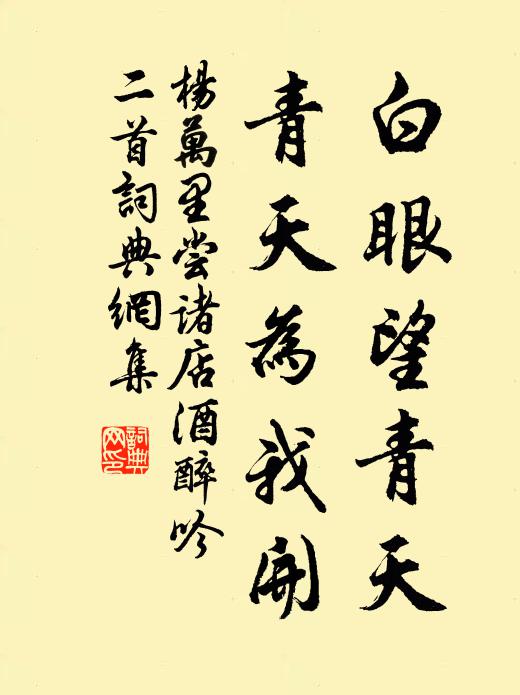 白眼望青天
青天為我開
楊萬里嘗諸店酒醉吟
二首詞典網集
詞典
网印